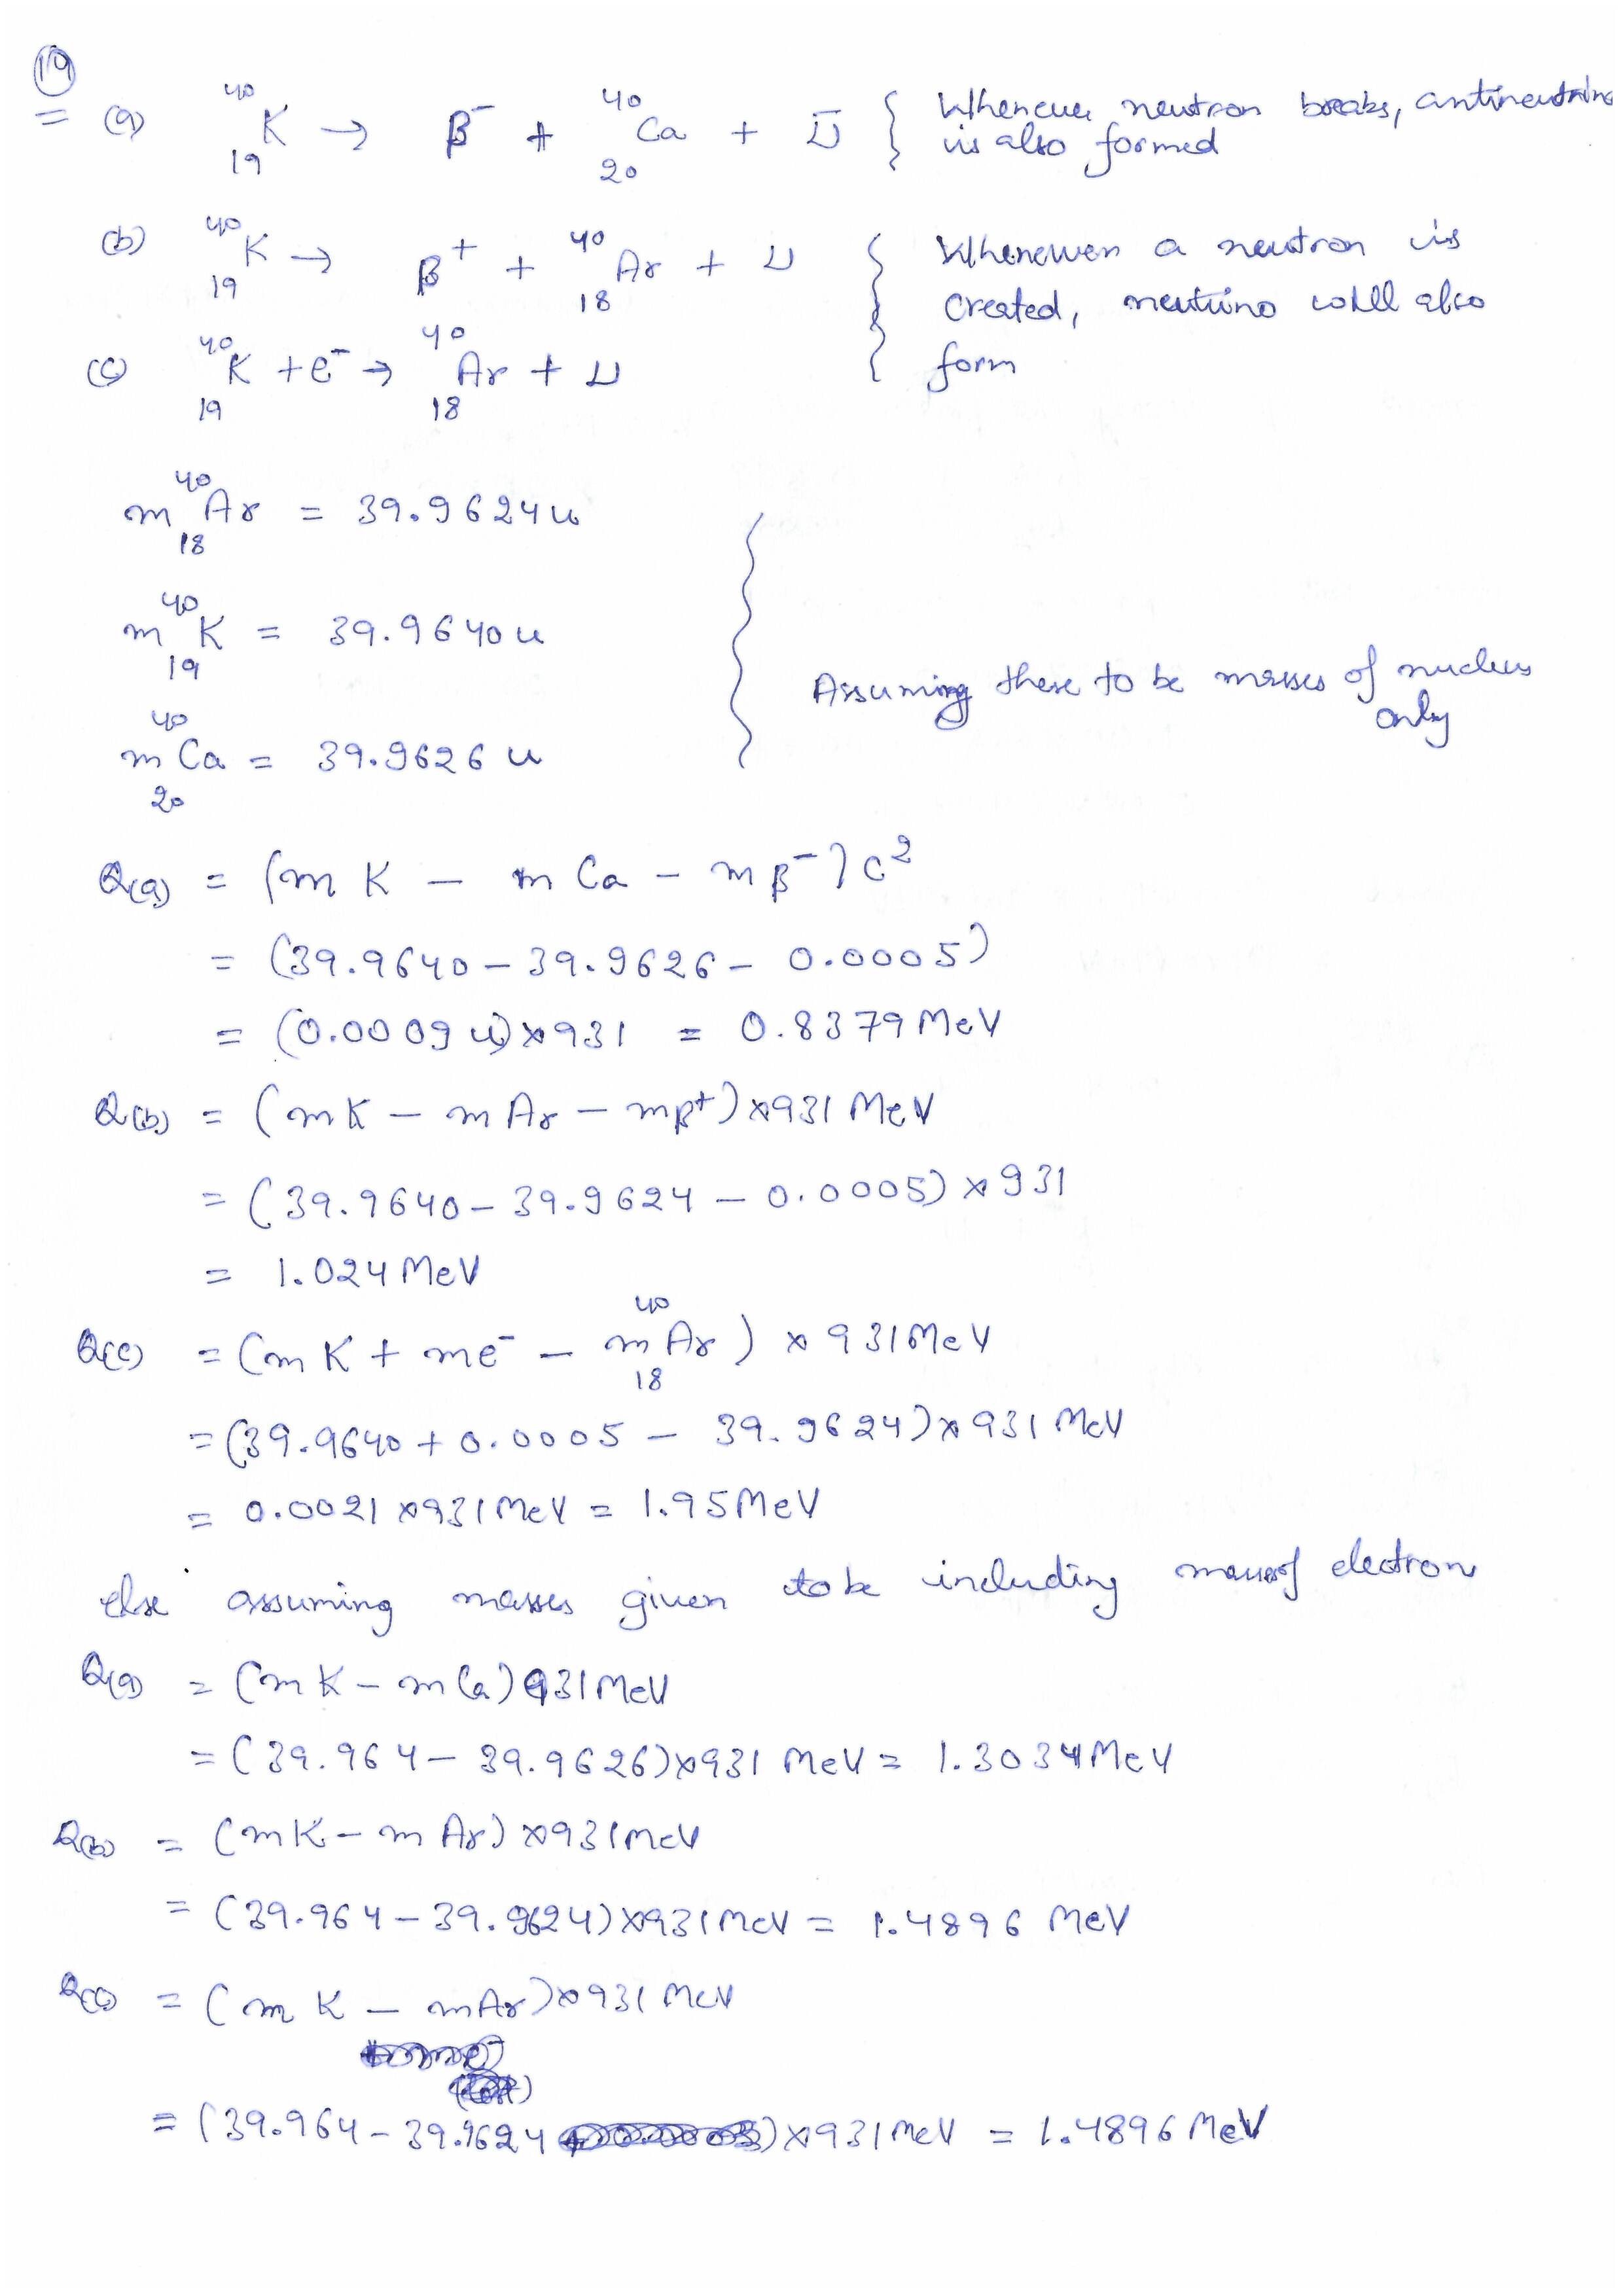 19
= (a) ⁴⁰₁₉K → β⁻ + ⁴⁰₂₀Ca + ν̄ { Whenever neutron breaks, antineutrino
is also formed
(b) ⁴⁰₁₉K → β⁺ + ⁴⁰₁₈Ar + ν { Whenever a neutron is
created, neutrino will also
(c) ⁴⁰₁₉K + e⁻ → ⁴⁰₁₈Ar + ν form
m ⁴⁰₁₈Ar = 39.9624 u
m ⁴⁰₁₉K = 39.9640 u
Assuming these to be masses of nucleus
only
m ⁴⁰₂₀Ca = 39.9626 u
Q(a) = (m K – m Ca – m β⁻) c²
= (39.9640 – 39.9626 – 0.0005)
= (0.0009 u) × 931 = 0.8379 MeV
Q(b) = (mK – m Ar – mβ⁺) × 931 MeV
= (39.9640 – 39.9624 – 0.0005) × 931
= 1.024 MeV
Q(c) = (m K + me⁻ – m ⁴⁰₁₈Ar) × 931 MeV
= (39.9640 + 0.0005 – 39.9624) × 931 MeV
= 0.0021 × 931 MeV = 1.95 MeV
else assuming masses given to be including mass of electron
Q(a) = (m K – m Ca) 931 MeV
= (39.964 – 39.9626) × 931 MeV = 1.3034 MeV
Q(b) = (mK – m Ar) × 931 MeV
= (39.964 – 39.9624) × 931 MeV = 1.4896 MeV
Q(c) = (m K – mAr) × 931 MeV
= (39.964 – 39.9624) × 931 MeV = 1.4896 MeV